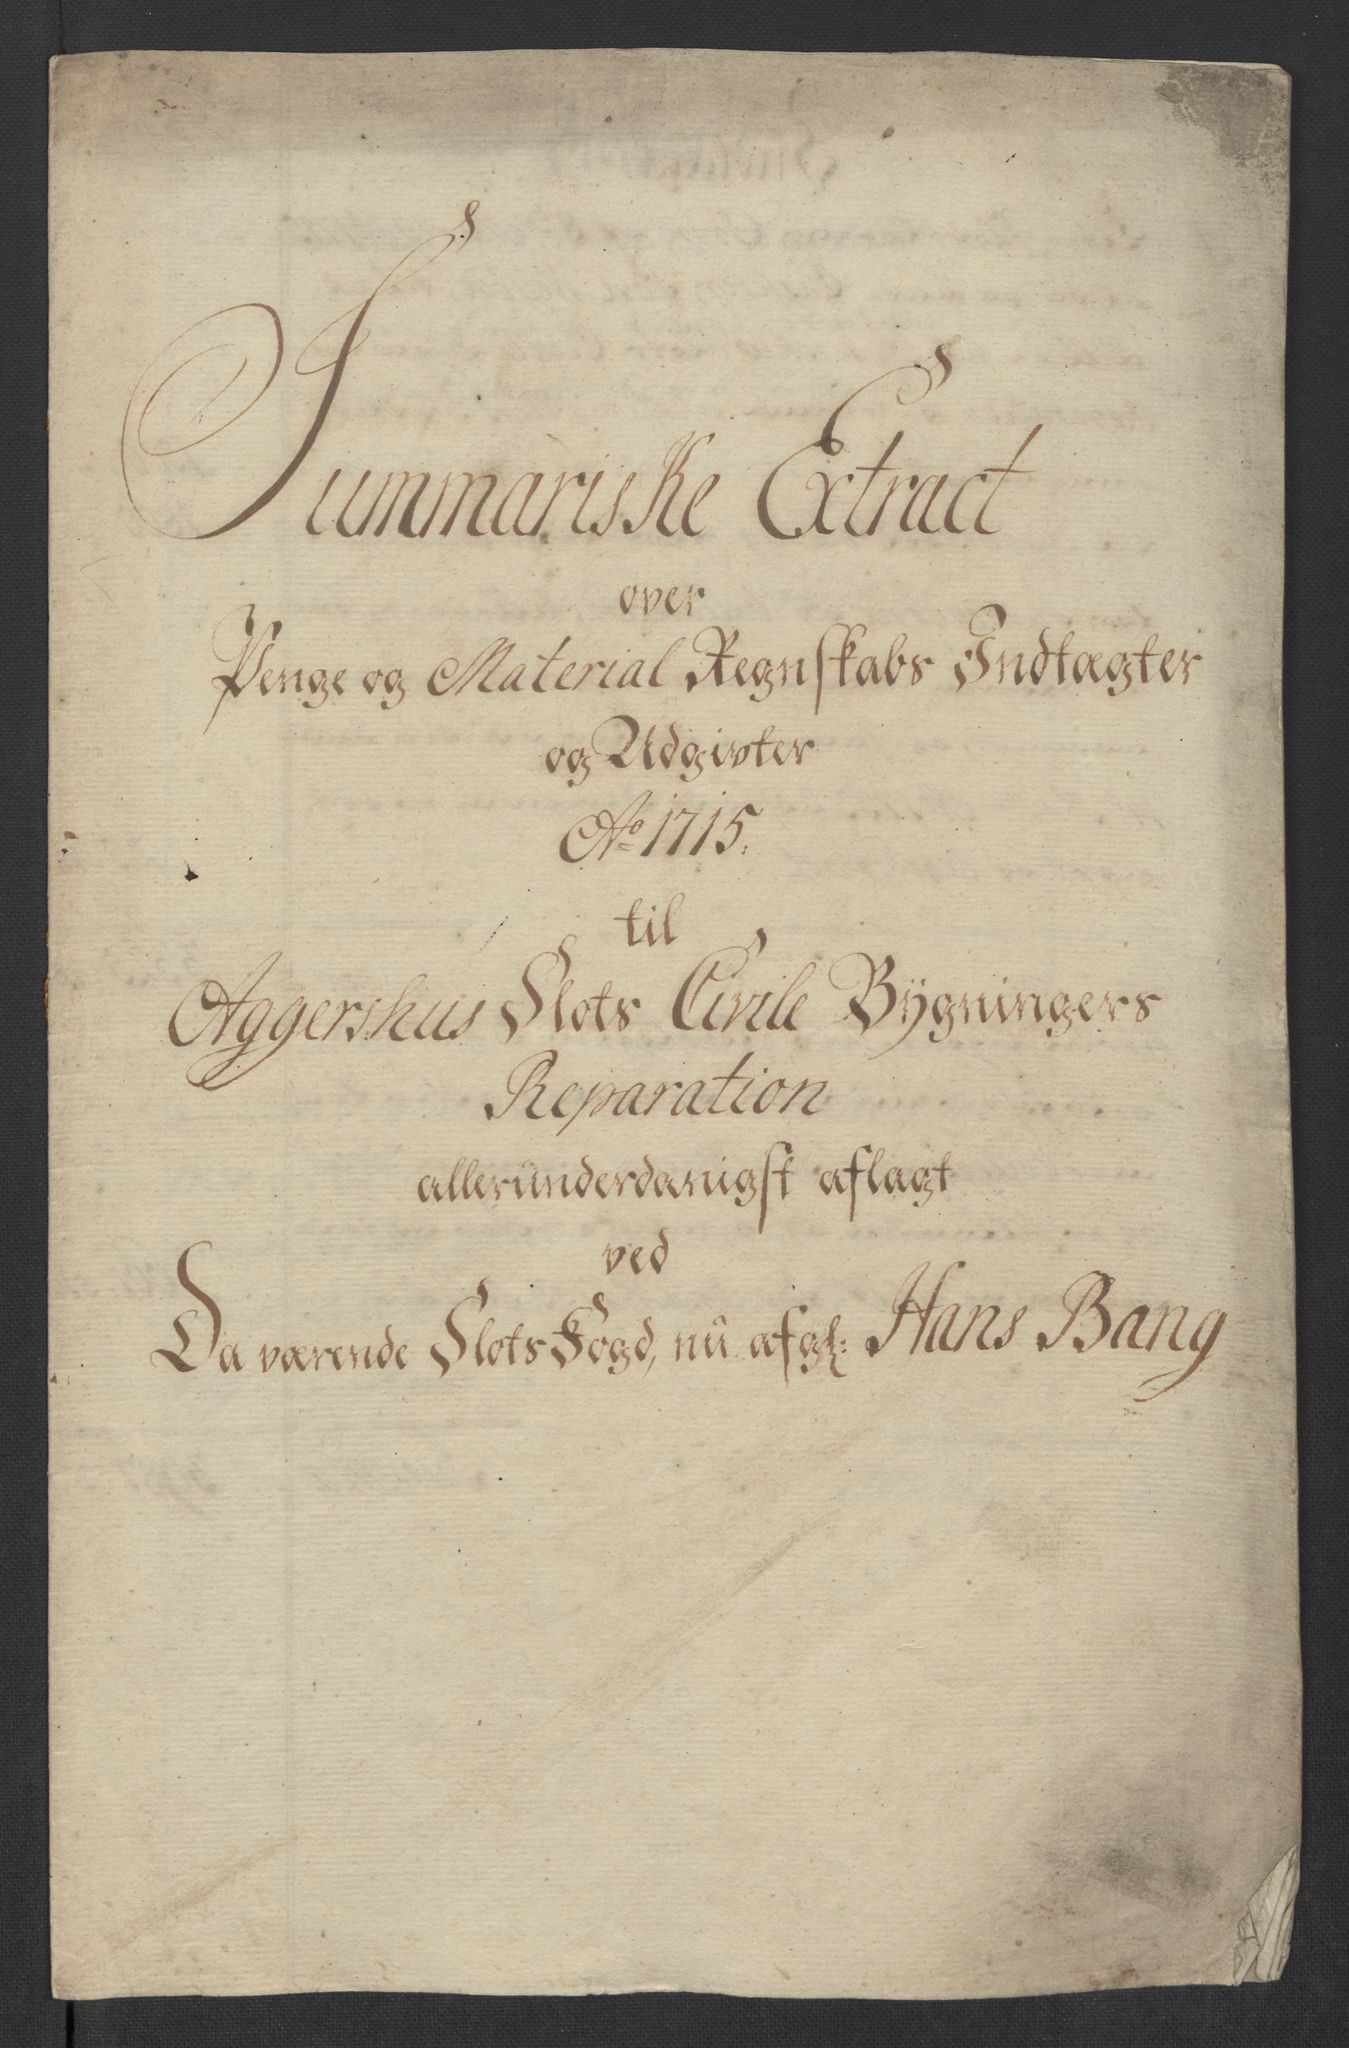 Summariske Extract
over
Penge og Material Regnskabs Indtægter
og Udgivter
Ao 1715.
til
Aggershus Slots Civile Bygningers
Reparation
allerunderdanigst aflagt
ved
Da værende Slots Fogd, nu afgl: Hans Bang